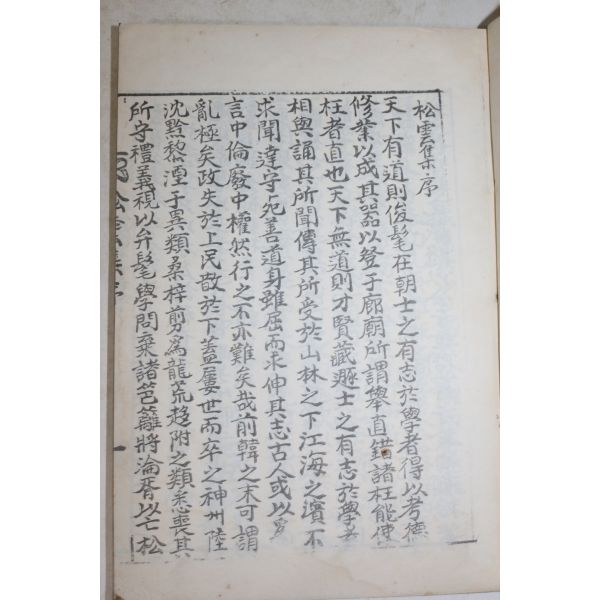 松雲集序
天下有道則俊髦在朝士之有志於學者得以考德
修業以成其器以登于廊廟所謂擧直錯諸枉能使
枉者直也天下無道則才賢藏遯士之有志於學
相與誦其所聞傳其所受於山林之下江海之濱不
求聞達守死善道身雖屈而求伸其志古人或以
言中倫廢中權然行之不亦難矣哉前韓之末可謂
亂極矣政失於上民散於下蓋屢世而卒之神州陸
沈黔黎湮于異類桑梓剪爲龍荒趍附之類悉喪其
所守禮義視以弁髦學問棄諸笆籬將淪胥以亡松
松雲集序
一